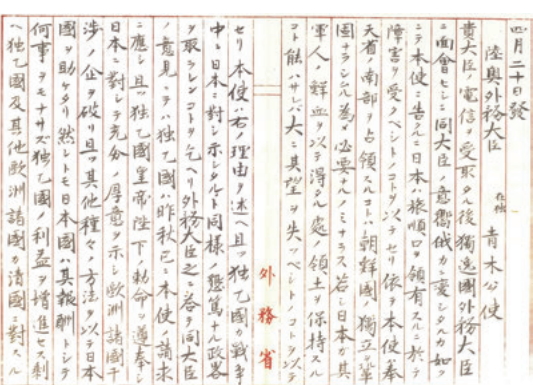 四月二十日發
陸奧外務大臣 在独 青木公使
貴大臣ノ電信ヲ受取タル後獨逸國外務大臣
ニ面會セシニ同大臣ノ意嚮俄カニ変シタルカ如ク
ニテ本使ニ告クルニ日本ハ旅順口ヲ領有スルニ於テ
障害ヲ受クベシトノコトヲ以テセリ依テ本使奉
天省ノ南部ヲ占領スルコトハ朝鮮國ノ獨立ヲ鞏
固ナラシムル為メ必要タルノミナラス若シ日本カ其
軍人ノ鮮血ヲ以テ得タル處ノ領土ヲ保持スル
コト能ハサレハ大ニ其望ヲ失フベシトノコトヲ以テ
外務省
セリ本使ハ右ノ理由ヲ述ヘ且ツ独乙國カ戰爭
中ニ日本ニ對シ示シタルト同樣ノ懇篤ナル政畧
ヲ取ラレンコトヲ乞ヘリ外務大臣之ニ答テ同大臣
ノ意見ニテハ独乙國ハ昨秋已ニ本使ノ請求
ニ應シ且ツ独乙國皇帝陛下ノ勅命ニ遵奉シ
日本ニ對シテ充分ノ厚意ヲ示シ歐洲諸國干
渉ノ企ヲ破リ且ツ其他種々ノ方法ヲ以テ日本
國ヲ助ケタリ然レトモ日本國ハ其報酬トシテ
何事ヲモナサズ独乙國ノ利益ヲ增進セス剩
ヘ独乙國及其他歐洲諸國カ清國ニ對スル